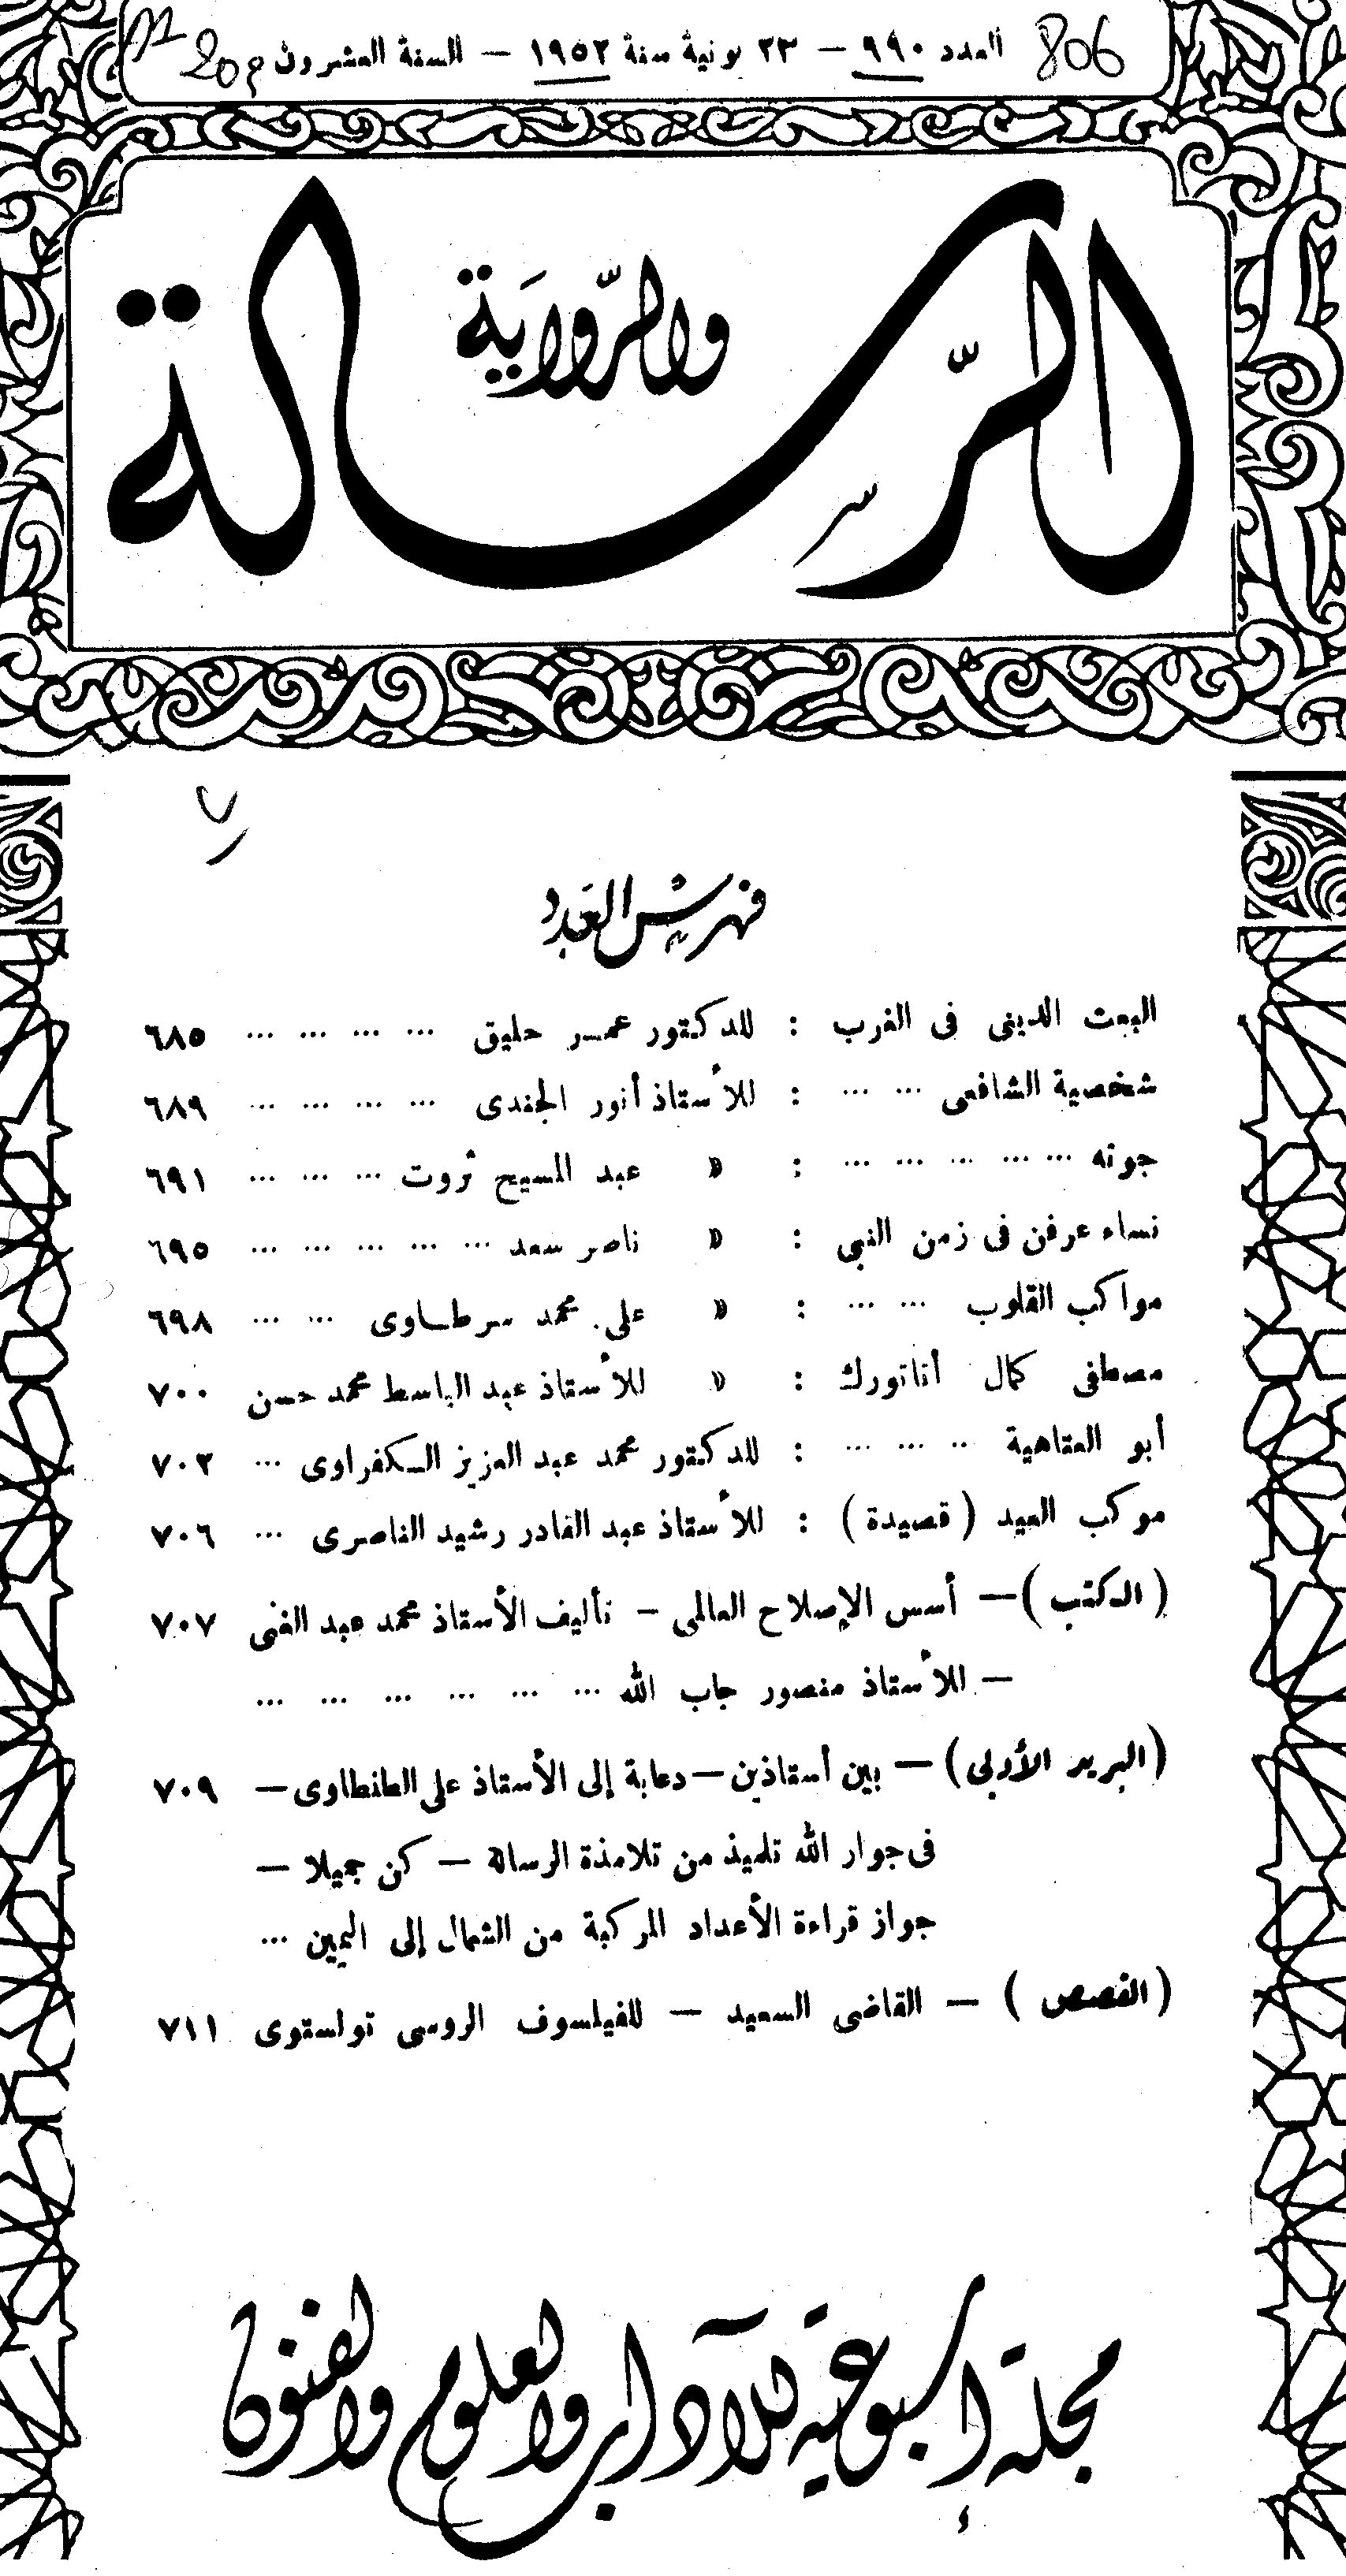 806
العدد ٩٩٠ — ٢٣ يونية سنة ١٩٥٢ — السنة العشرون
الرسالة
والرواية
فهرس العدد
البعث الدينى فى الغرب : للدكتور عمـر حليق ... ... ... ... ٦٨٥
شخصية الشافعى ... ... : للأستاذ أنور الجندى ... ... ... ... ٦٨٩
جوته ... ... ... ... ... : » عبد المسيح ثروت ... ... ... ٦٩١
نساء عرفن فى زمن النبي : » ناصر سعد ... ... ... ... ... ٦٩٥
مواكب القلوب ... ... : » على محمد سرطـاوى ... ... ٦٩٨
مصطفى كمال أتاتورك : » للأستاذ عبد الباسط محمد حسن ٧٠٠
أبو العتاهية ... ... ... : للدكتور محمد عبد العزيز الـكفراوى ... ٧٠٢
موكب العيد ( قصيدة ) : للأستاذ عبد القادر رشيد الناصرى ... ٧٠٦
( الكتب ) — أسس الإصلاح العالمى — تأليف الأستاذ محمد عبد الغنى ٧٠٧
— للأستاذ منصور جاب الله ... ... ... ... ... ...
(البريد الأدبى) — بين أستاذين — دعابة إلى الأستاذ على الطنطاوى — ٧٠٩
فى جوار الله تلميذ من تلامذة الرسالة — كن جميلا —
جواز قراءة الأعداد المركبة من الشمال إلى اليمين ...
( القصص ) — القاضى السعيد — للفيلسوف الروسى تولستوى ٧١١
مجلة أسبوعية للآداب والعلوم والفنون